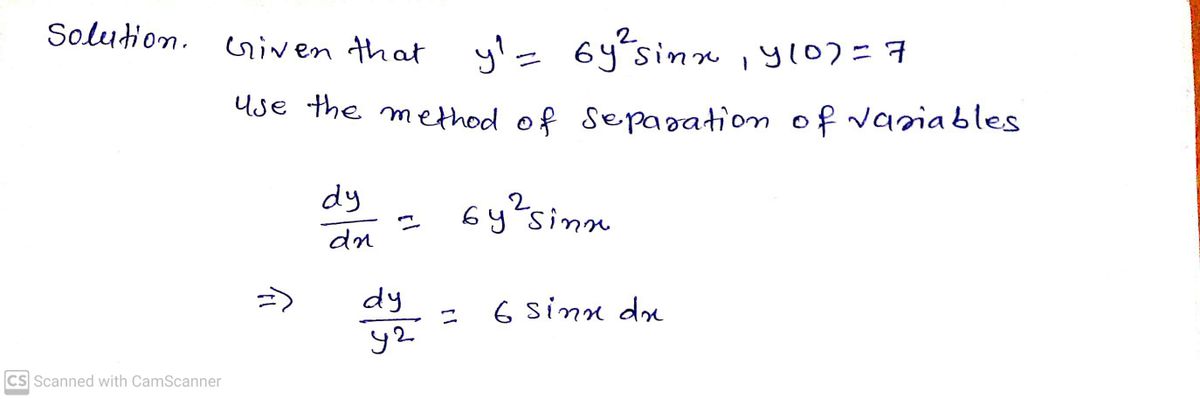 Solution. Given that y' = 6y²sinx, y(0) = 7
Use the method of separation of variables
dy/dx = 6y²sinx
=> dy/y² = 6 sinx dx
CS Scanned with CamScanner